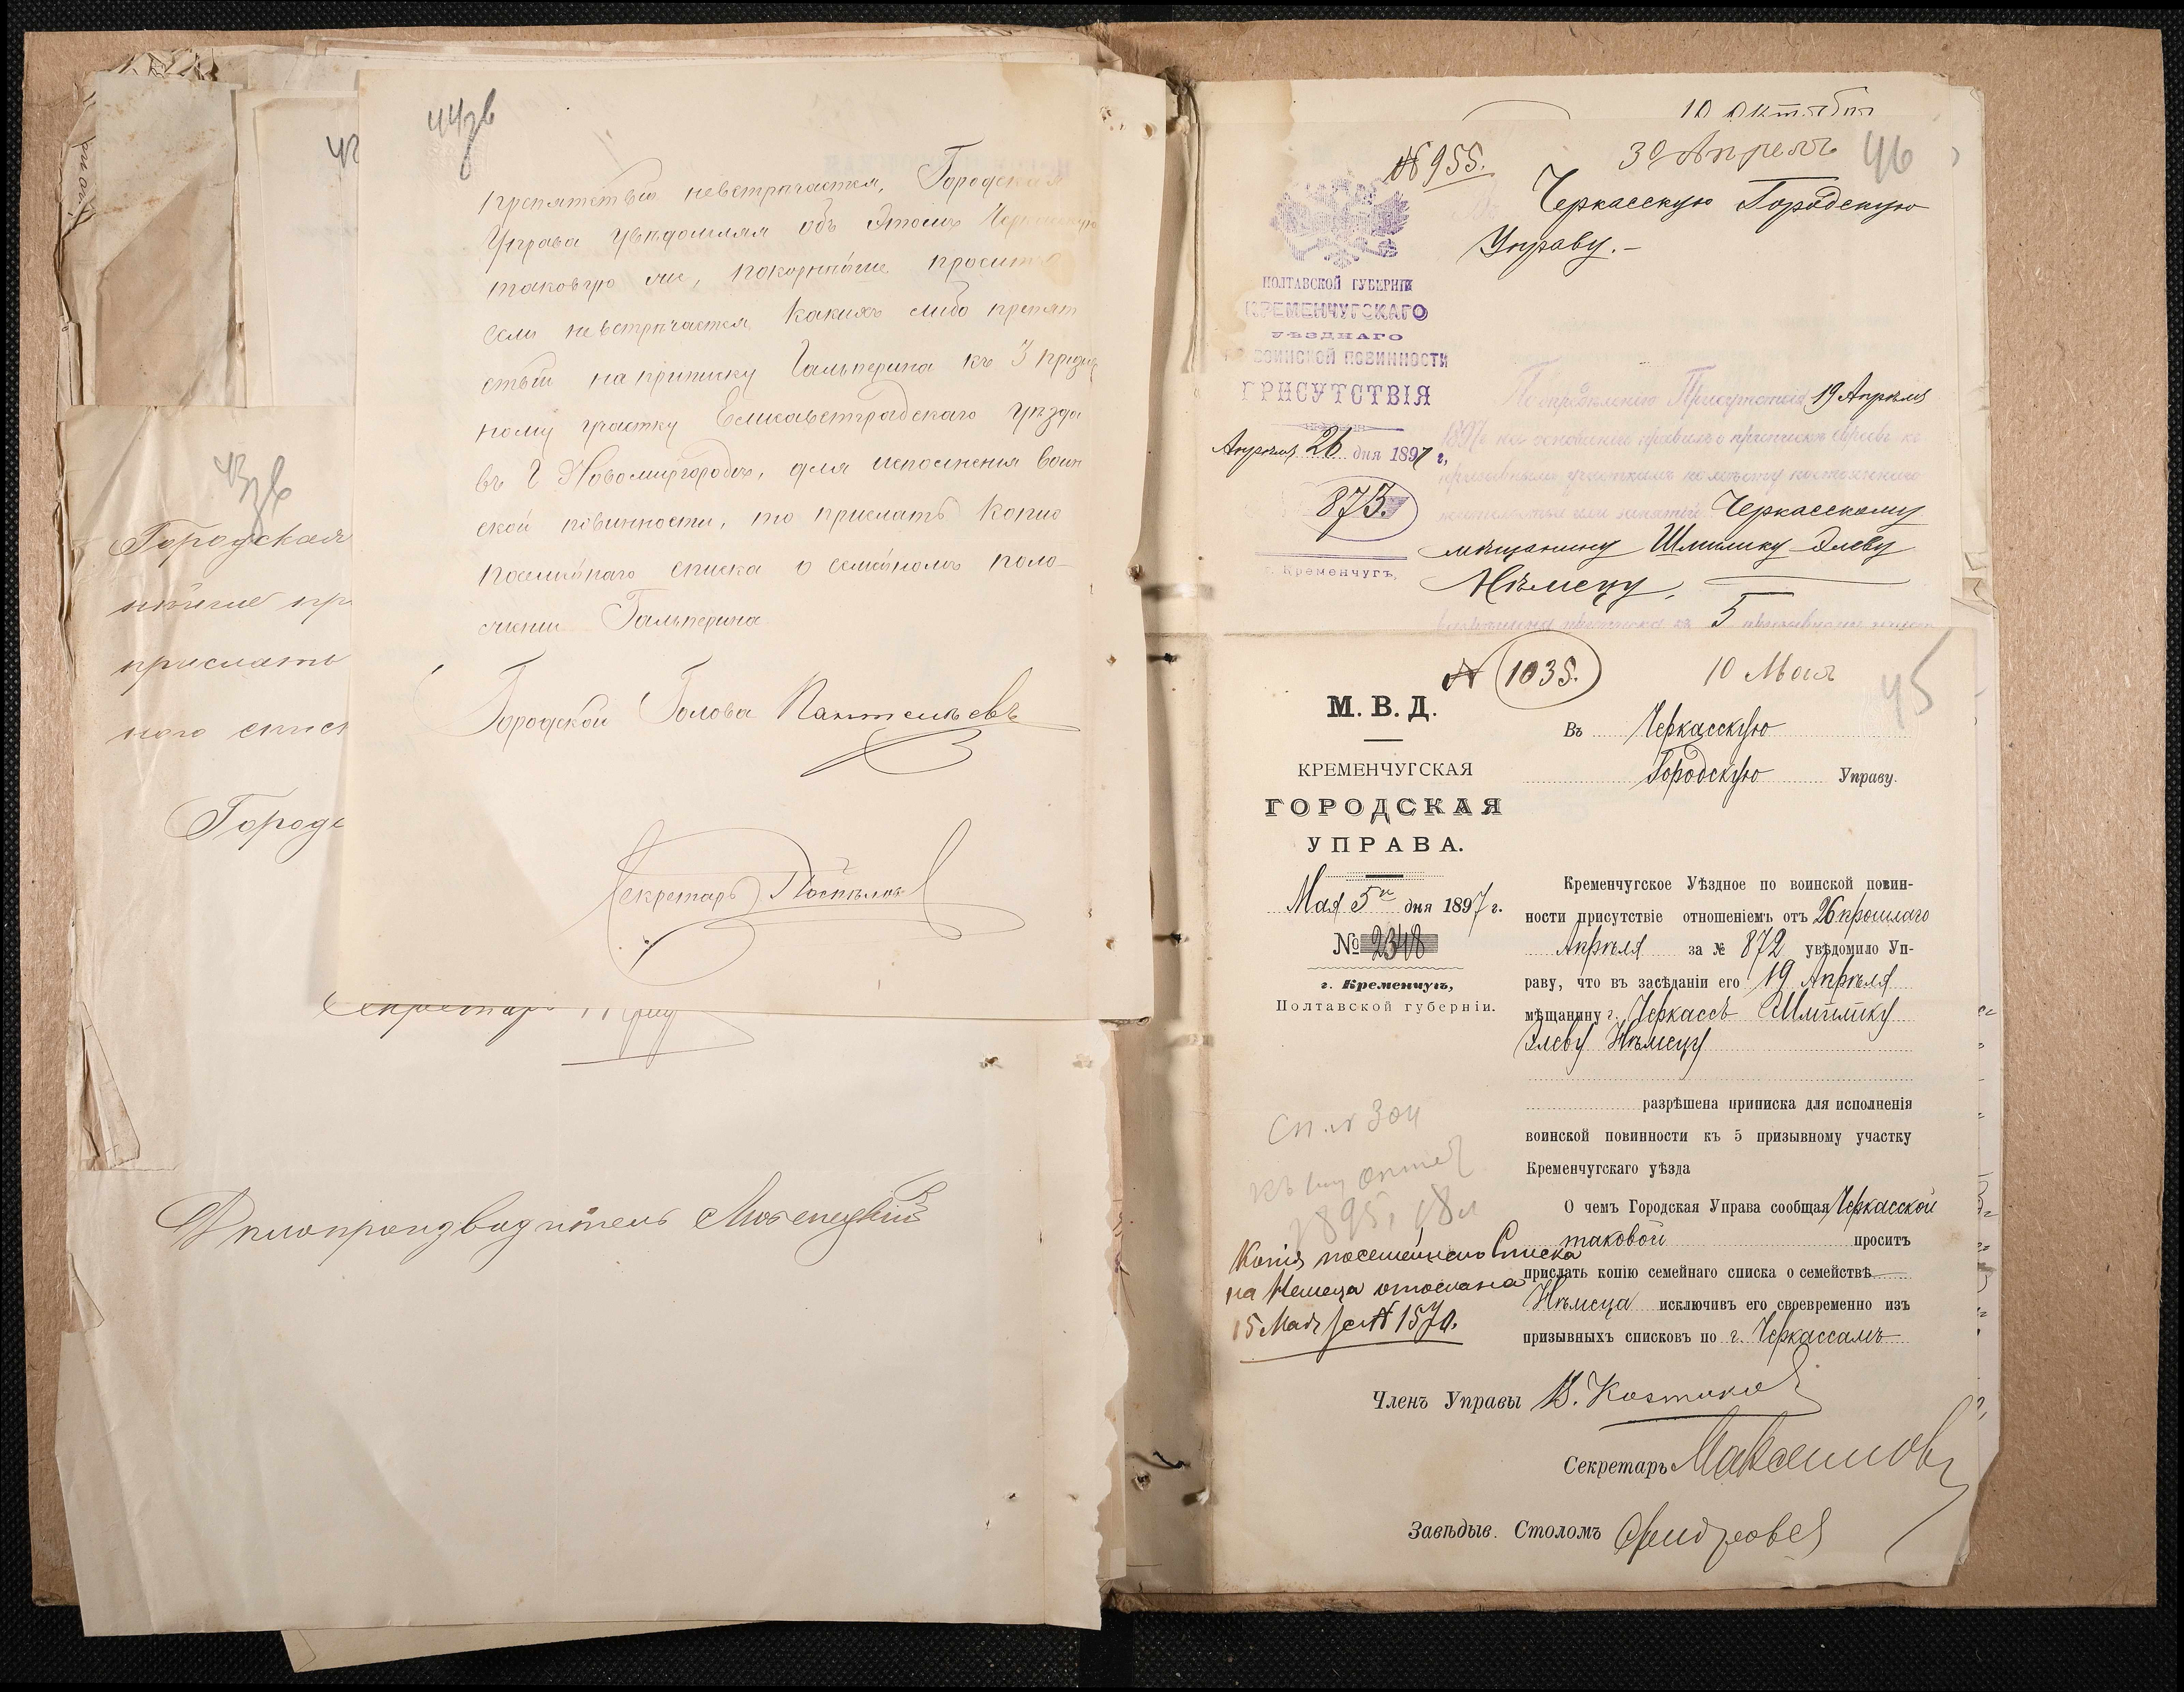 44зв
препятствiя невстрѣчается, Городская
Управа увѣдомляя объ этомъ Черкасскую
таковую же, покорнѣйше проситъ
если невстрѣчается какихъ либо препят
ствiй на приписку Гальперина къ 3 призыв
ному участку Елисаветградскаго уѣзда
въ г Новомиргородѣ, для исполненiя воин
ской повинности, то прислать копiю
посемѣйнаго списка о семейномъ поло-
женiи Гальперина
Городской Голова Пантелѣевъ
Секретарь
43зв
Городская
нѣйше пр
прислать
ного списк
Городс
Секретарь
Дѣлопроизводитель
10 Октября
№ 955.
30 Апрѣля
46
Черкасскую Городскую
Управу.-
ПОЛТАВСКОЙ ГУБЕРНIИ
КРЕМЕНЧУГСКАГО
УѢЗДНАГО
ПО ВОИНСКОЙ ПОВИННОСТИ
ПРИСУТСТВIЯ
Апрѣля 26 дня 1897 г,
873.
г. Кременчугъ,
Постановленiемъ Присутствiя 19 Апрѣля
1897 г на основанiи правилъ о припискѣ евреевъ къ
призывнымъ участкамъ по мѣсту постояннаго
жительства или занятiй Черкасскому
мѣщанину Шмилику Элеву
Нѣмецу,
разрѣшена приписка къ 5 призывному участ
№ 1035.
10 Мая
45
М. В. Д.
КРЕМЕНЧУГСКАЯ
ГОРОДСКАЯ
УПРАВА.
Мая 5го дня 1897 г.
№ 2348
г. Кременчугъ,
Полтавской губернiи.
Въ Черкасскую
Городскую Управу.
Кременчугское Уѣздное по воинской повин-
ности присутствiе отношенiемъ отъ 26 прошлаго
Апрѣля за № 872 увѣдомило Уп-
раву, что въ засѣданiи его 19 Апрѣля
мѣщанину г. Черкассъ Шмилику
Элеву Нѣмецу
разрѣшена приписка для исполненiя
воинской повинности къ 5 призывному участку
Кременчугскаго уѣзда
О чемъ Городская Управа сообщая Черкасской
таковой проситъ
прислать копiю семейнаго списка о семействѣ
Нѣмеца исключивъ его своевременно изъ
призывныхъ списковъ по г. Черкассамъ
Сп. № 304
1895, 18
Копiя посемейнаго Списка
на Немеца отослана
15 Мая за № 1570.
Членъ Управы В. Костиков
Секретарь Максимовъ
Завѣдыв. Столомъ